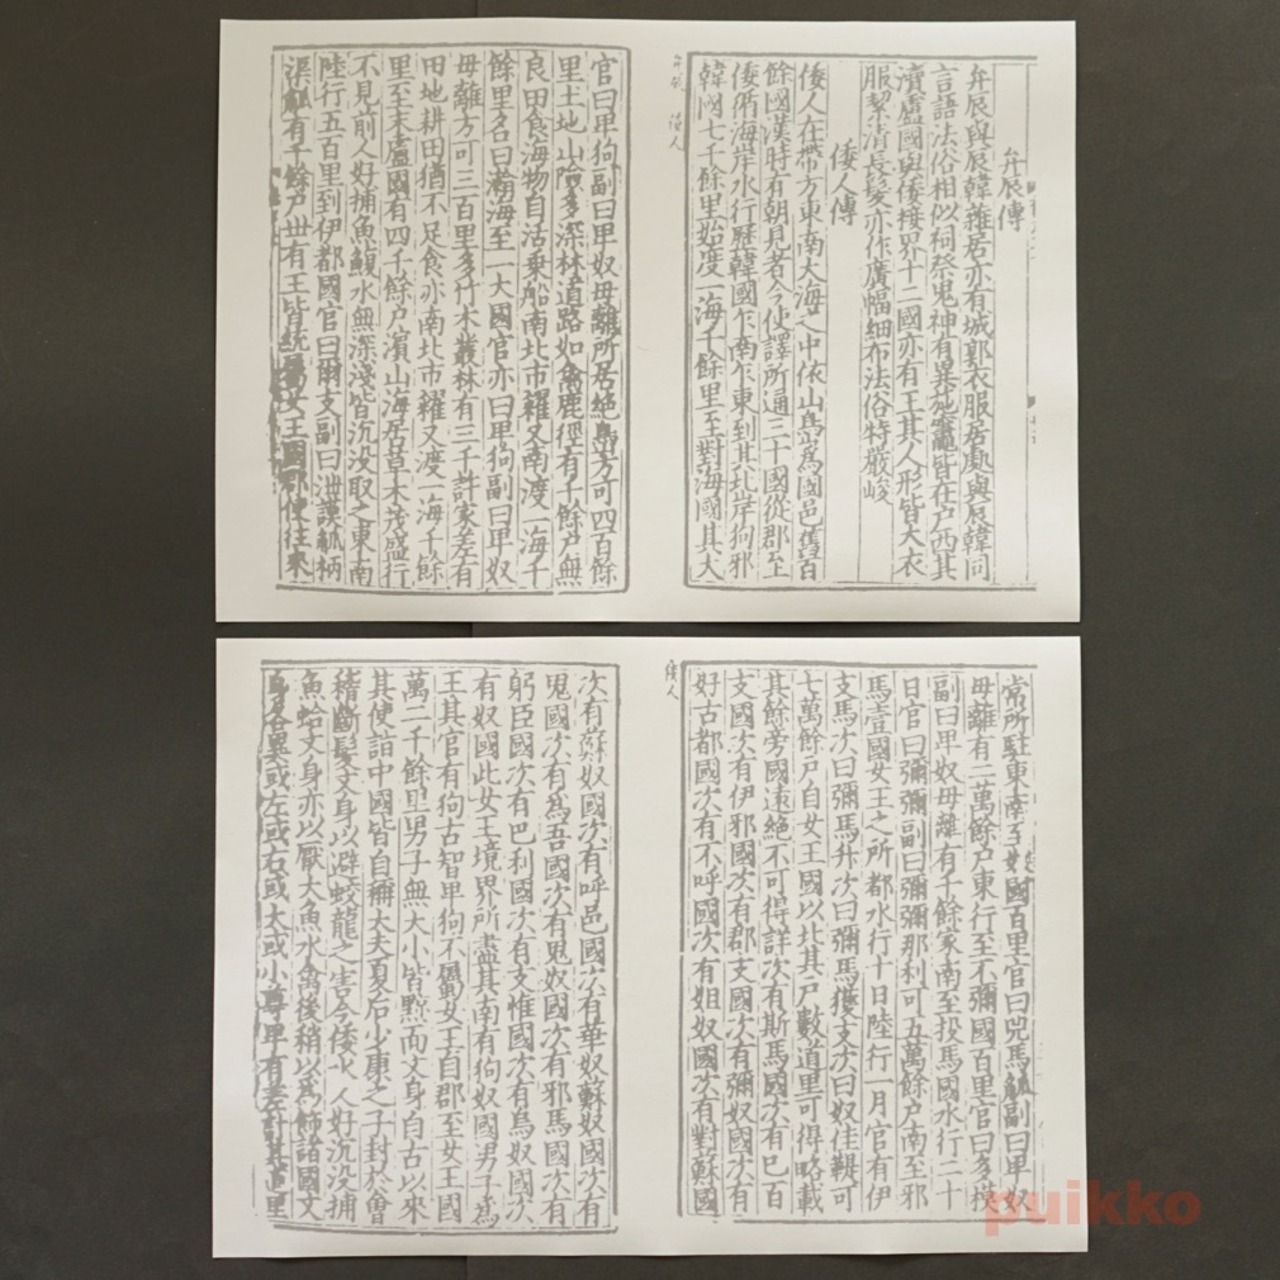 弁辰傳
弁辰與辰韓雜居亦有城郭衣服居處與辰韓同
言語法俗相似祠祭鬼神有異施竈皆在户西其
瀆盧國與倭接界十二國亦有王其人形皆大衣
服絜清長髮亦作廣幅細布法俗特嚴峻
倭人傳
倭人在帶方東南大海之中依山島爲國邑舊百
餘國漢時有朝見者今使譯所通三十國從郡至
倭循海岸水行歷韓國乍南乍東到其北岸狗邪
韓國七千餘里始度一海千餘里至對海國其大
弁辰 倭人
官曰卑狗副曰卑奴母離所居絶島方可四百餘
里土地山險多深林道路如禽鹿徑有千餘户無
良田食海物自活乗船南北市糴又南渡一海千
餘里名曰瀚海至一大國官亦曰卑狗副曰卑奴
母離方可三百里多竹木叢林有三千許家差有
田地耕田猶不足食亦南北市糴又渡一海千餘
里至末盧國有四千餘户濱山海居草木茂盛行
不見前人好捕魚鰒水無深淺皆沉没取之東南
陸行五百里到伊都國官曰爾支副曰泄謨觚柄
渠觚有千餘户丗有王皆統屬女王國郡使往來
常所駐東南至奴國百里官曰兕馬觚副曰卑奴
母離有二萬餘户東行至不彌國百里官曰多模
副曰卑奴母離有千餘家南至投馬國水行二十
日官曰彌彌副曰彌彌那利可五萬餘户南至邪
馬壹國女王之所都水行十日陸行一月官有伊
支馬次曰彌馬升次曰彌馬獲支次曰奴佳鞮可
七萬餘户自女王國以北其户數道里可得略載
其餘旁國遠絶不可得詳次有斯馬國次有巳百
支國次有伊邪國次有郡支國次有彌奴國次有
好古都國次有不呼國次有姐奴國次有對蘇國
倭人
次有蘇奴國次有呼邑國次有華奴蘇奴國次有
鬼國次有爲吾國次有鬼奴國次有邪馬國次有
躬臣國次有巴利國次有支惟國次有烏奴國次
有奴國此女王境界所盡其南有狗奴國男子爲
王其官有狗古智卑狗不屬女王自郡至女王國
萬二千餘里男子無大小皆黥面文身自古以來
其使詣中國皆自稱大夫夏后少康之子封於會
稽斷髮文身以避蛟龍之害今倭水人好沉没捕
魚蛤文身亦以厭大魚水禽後稍以爲飾諸國文
身各異或左或右或大或小尊卑有差計其道里
puikko